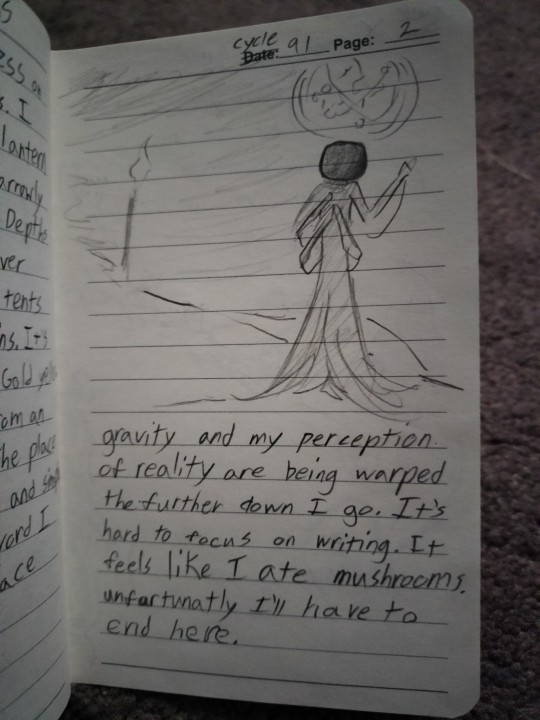 s
ess on
s. I
lantern
arrowly
Depths
ver
tents
ns. It's
Gold
om an
he place
and
I
ace
cycle
Date: 91 Page: 2
gravity and my perception.
of reality are being warped
the further down I go. It's
hard to focus on writing. It
feels like I ate mushrooms.
unfortunatly I'll have to
end here.